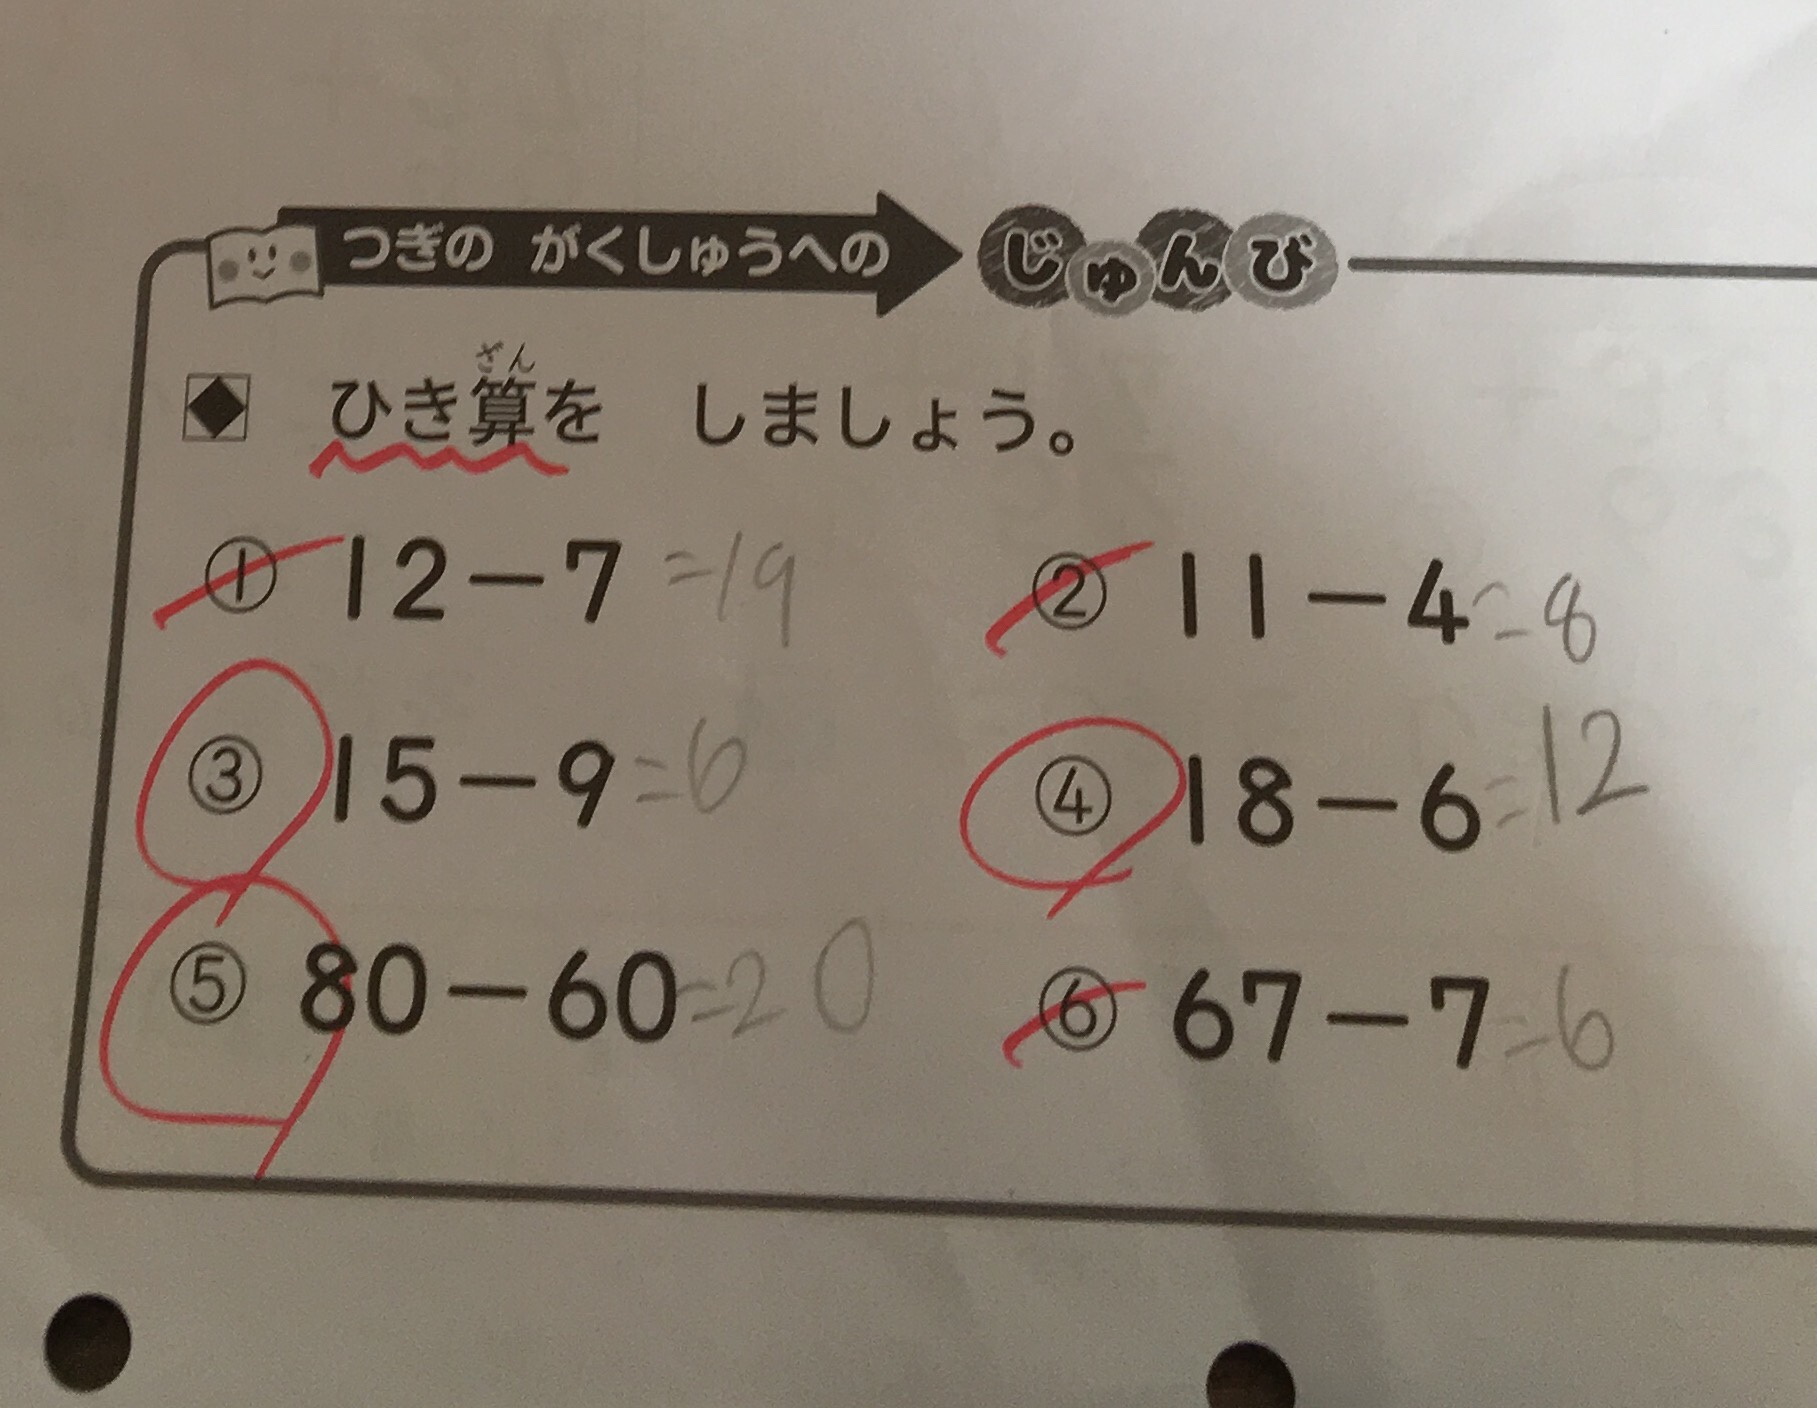 つぎの がくしゅうへの じゅんび
ざん
◆ ひき算を しましょう。
① 12－7 =19 ② 11－4 =8
③ 15－9 =6 ④ 18－6 =12
⑤ 80－60 =20 ⑥ 67－7 =6